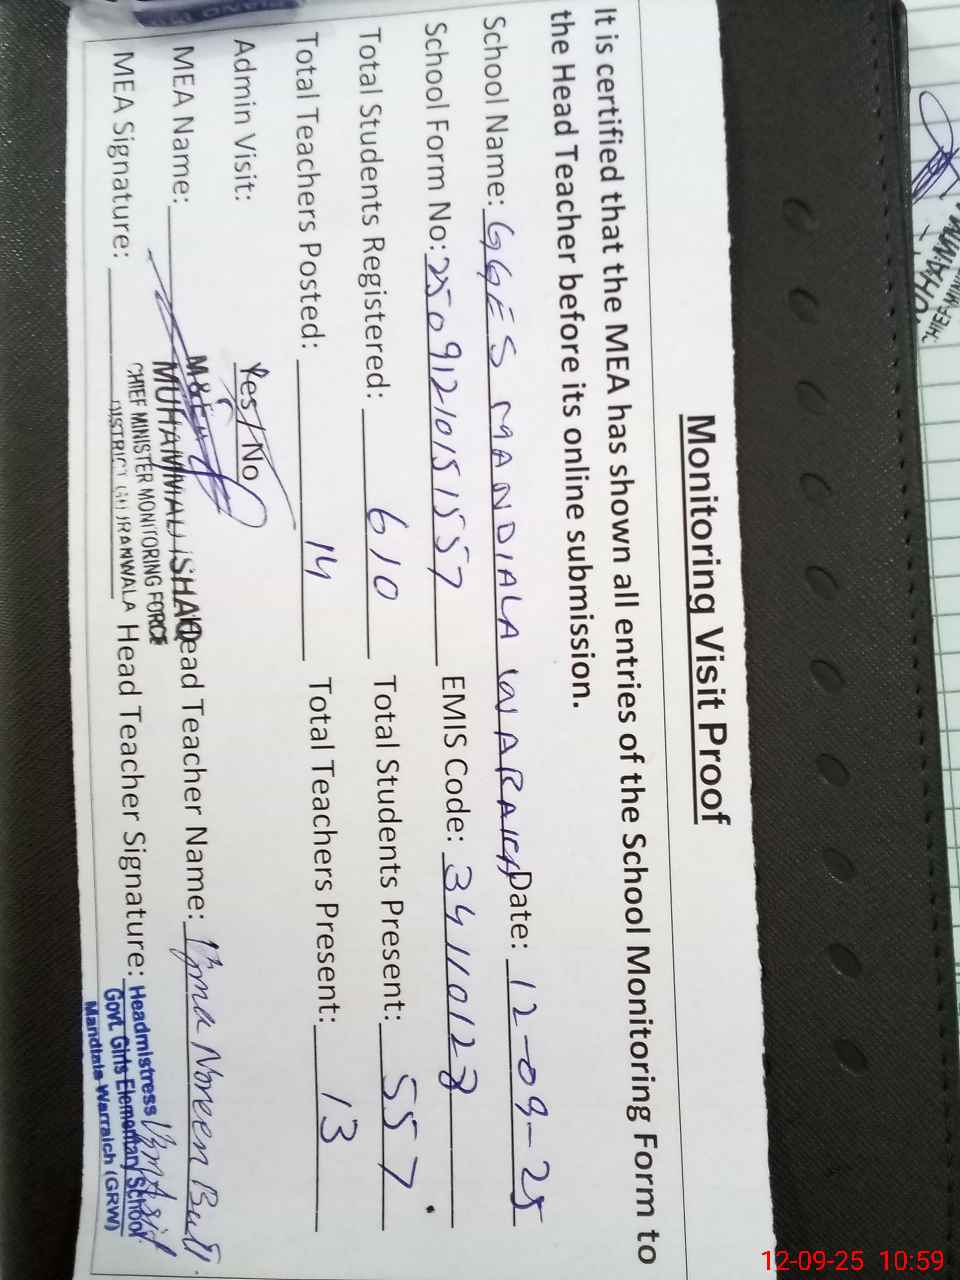 Monitoring Visit Proof
It is certified that the MEA has shown all entries of the School Monitoring Form to
the Head Teacher before its online submission.
School Name: GGES MANDIALA WARAICH Date: 12-09-25
School Form No: 25091210151557 EMIS Code: 34110123
Total Students Registered: 610 Total Students Present: 557
Total Teachers Posted: 14 Total Teachers Present: 13
Admin Visit: Yes/No
MEA Name: Head Teacher Name: Uzma Noreen Butt
MUHAMMAD ISHAQ
CHIEF MINISTER MONITORING FORCE
DISTRICT GUJRANWALA
MEA Signature: Head Teacher Signature:
Headmistress
Govt. Girls Elementary School
Mandiala Warraich (GRW)
12-09-25 10:59